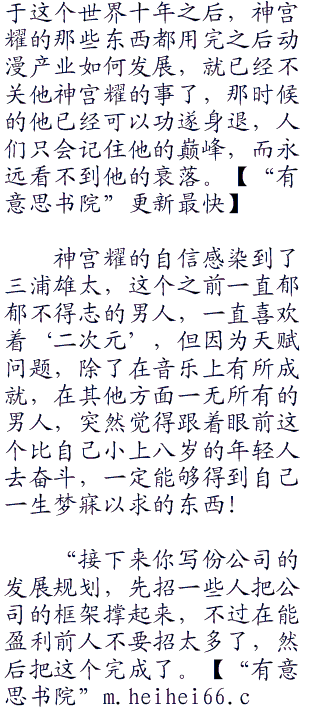 于这个世界十年之后，神宫
耀的那些东西都用完之后动
漫产业如何发展，就已经不
关他神宫耀的事了，那时候
的他已经可以功遂身退，人
们只会记住他的巅峰，而永
远看不到他的衰落。【“有
意思书院”更新最快】
神宫耀的自信感染到了
三浦雄太，这个之前一直郁
郁不得志的男人，一直喜欢
着‘二次元’，但因为天赋
问题，除了在音乐上有所成
就，在其他方面一无所有的
男人，突然觉得跟着眼前这
个比自己小上八岁的年轻人
去奋斗，一定能够得到自己
一生梦寐以求的东西！
“接下来你写份公司的
发展规划，先招一些人把公
司的框架撑起来，不过在能
盈利前人不要招太多了，然
后把这个完成了。【“有意
思书院”m.heihei66.c